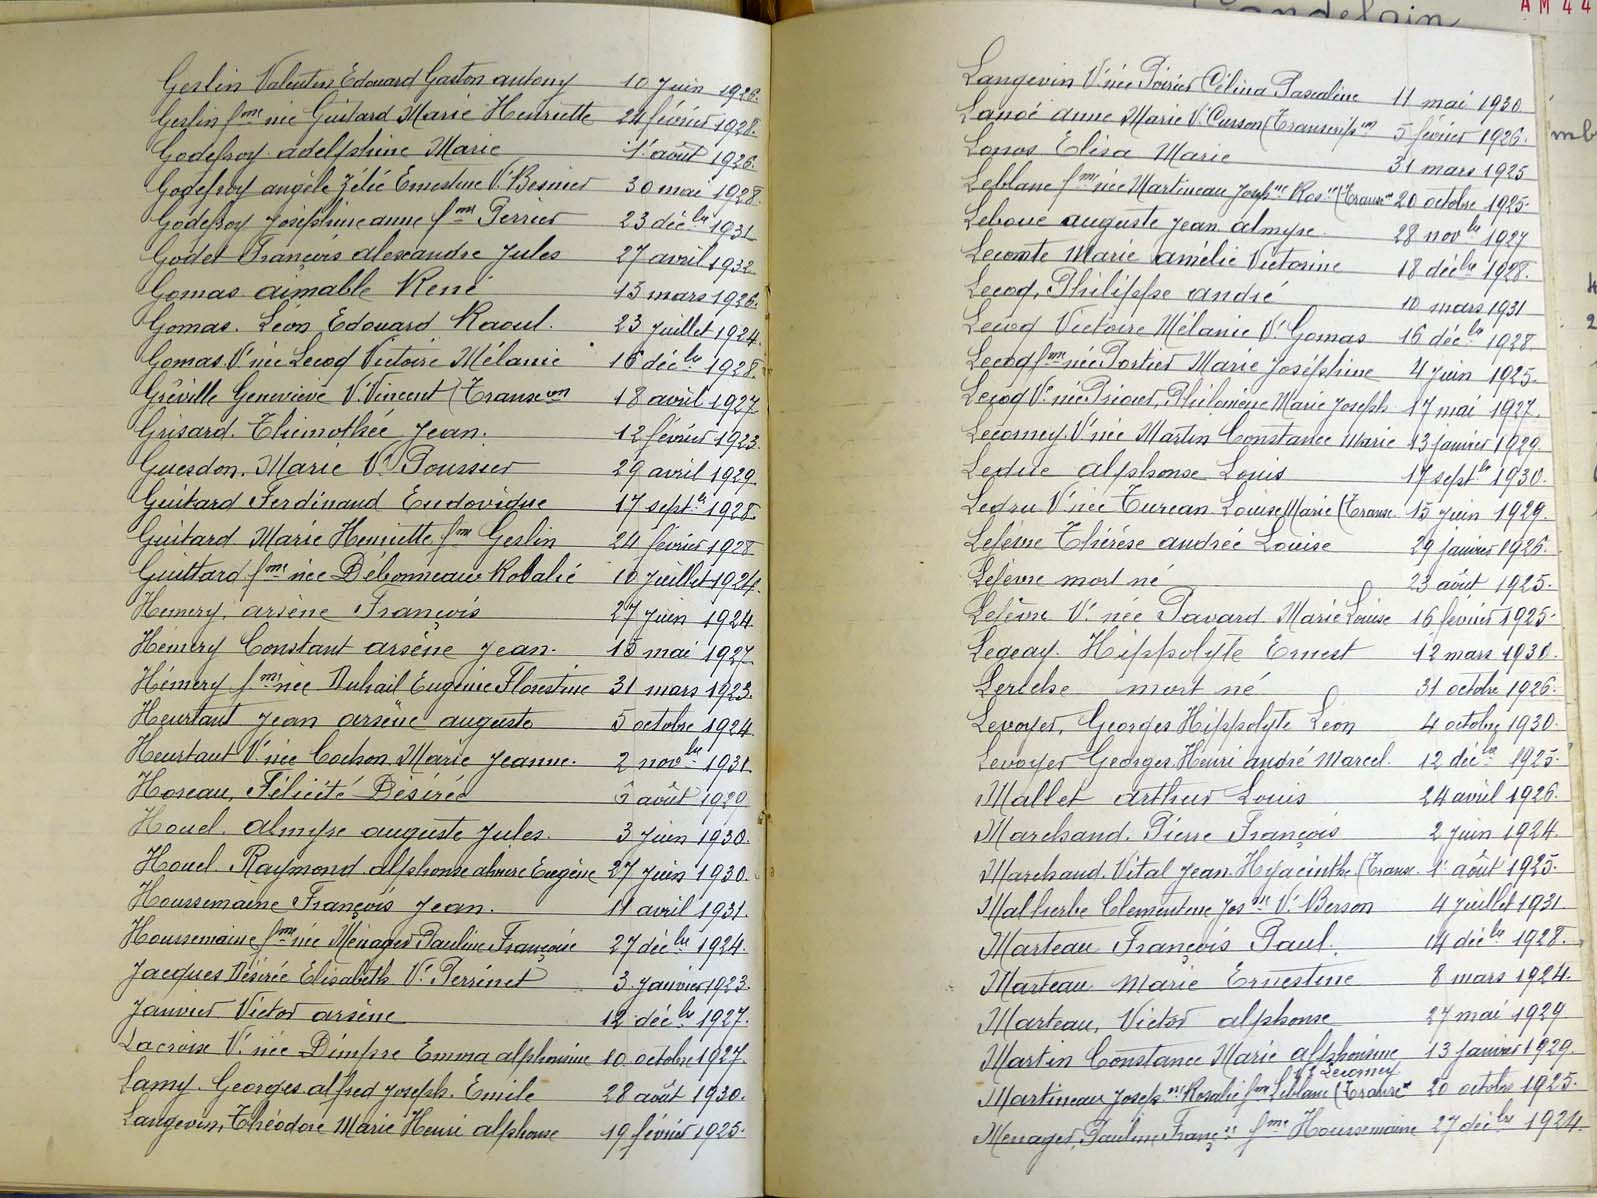 Gerlin Valentin Edouard Gaston antony 10 juin 1926.
Gerlin fme née Guitard Marie Henriette 24 février 1928.
Godefroy adelphine Marie 1er août 1926.
Godefroy angèle Zélié Ernestine Ve Besnier 30 mai 1928.
Godefroy Joséphine anne fme Perrier 23 décbre 1931
Godet François alexandre Jules 27 avril 1932
Gomas aimable René 15 mars 1926.
Gomas. Léon Edouard Raoul. 23 juillet 1924.
Gomas Ve née Lecoq Victoire Mélanie 16 décbre 1928.
Gréville Geneviève Ve Vincent (Transcon 18 avril 1927
Grisard. Thimothée Jean. 12 février 1923.
Guesdon. Marie Ve Poussier 29 avril 1929.
Guitard Ferdinand Ludovique 17 septbre 1928.
Guitard Marie Henriette fme Gerlin 24 février 1928
Guittard fme née Débonneau Rosalie 10 juillet 1924.
Hémery, arsène François 27 juin 1924.
Hémery Constant arsène Jean. 15 mai 1927.
Hémery fme née Duhail Eugénie Florestine 31 mars 1923.
Heurtaut Jean arsène auguste 5 octobre 1924.
Heurtaut Ve née Cochon Marie Jeanne. 2 novbre 1931
Hoseau, Félicité Désirée août 1929
Houel. almyre auguste Jules. 3 juin 1930.
Houel. Raymond alphonse Eugène 27 juin 1930.
Houssemaine François Jean. 11 avril 1931.
Houssemaine fme née Ménager Pauline Françoise 27 décbre 1924.
Jacques Désirée Elisabeth Ve Perrinet 3 janvier 1923.
Janvier Victor arsène 12 décbre 1927.
Lacroix Ve née Dimpre Emma alphonsine 10 octobre 1927.
Lamy. Georges alfred Joseph. Emile 28 août 1930.
Langevin, Théodore Marie Henri alphonse 19 février 1925.
Langevin Ve née Poirier Célina Pascaline 11 mai 1930
Lanoé anne Marie Ve Cusson (Transcripon 5 février 1926.
Lanos Elisa Marie 31 mars 1925
Leblanc fme née Martineau Josphne Rosie (Transcon 20 octobre 1925.
Leboue auguste Jean almyre. 28 novbre 1927
Lecomte Marie amélie Victorine 18 décbre 1928.
Lecoq, Philippe andré 10 mars 1931
Lecoq Victoire Mélanie Ve Gomas 16 décbre 1928.
Lecoq fme née Portier Marie Joséphine 4 juin 1925.
Lecoq Ve née Priour, Philomène Marie Joseph 17 mai 1927.
Lecorney Ve née Martin Constance Marie 13 janvier 1929.
Leduc alphonse Louis 17 septbre 1930.
Ledru Ve née Turcan Louise Marie (Transc 15 juin 1929.
Lefèvre Thérèse andrée Louise 29 janvier 1926.
Lefèvre mort né 23 août 1925.
Lefèvre Ve née Pavard Marie Louise 16 février 1925.
Legeay. Hippolyte Ernest 12 mars 1930.
Leriche mort né 31 octobre 1926.
Levoyer, Georges Hippolyte Léon 4 octobre 1930.
Levoyer Georges Henri andré Marcel. 12 décbre 1925.
Mallet arthur Louis 24 avril 1926.
Marchand. Pierre François 2 juin 1924.
Marchand. Vital Jean Hyacinthe (Transc. 1er août 1925.
Malherbe Clementine Josne Ve Berson 4 juillet 1931
Marteau François Paul. 14 décbre 1928.
Marteau Marie Ernestine 8 mars 1924.
Marteau, Victor alphonse 27 mai 1929
Martin Constance Marie alphonsine 13 janvier 1929.
Ve Lecorney
Martineau Josephne Rosalie fme Leblanc (Transcon 20 octobre 1925.
Menager, Pauline Françse fme Houssemaine 27 décbre 1924.
AM 44